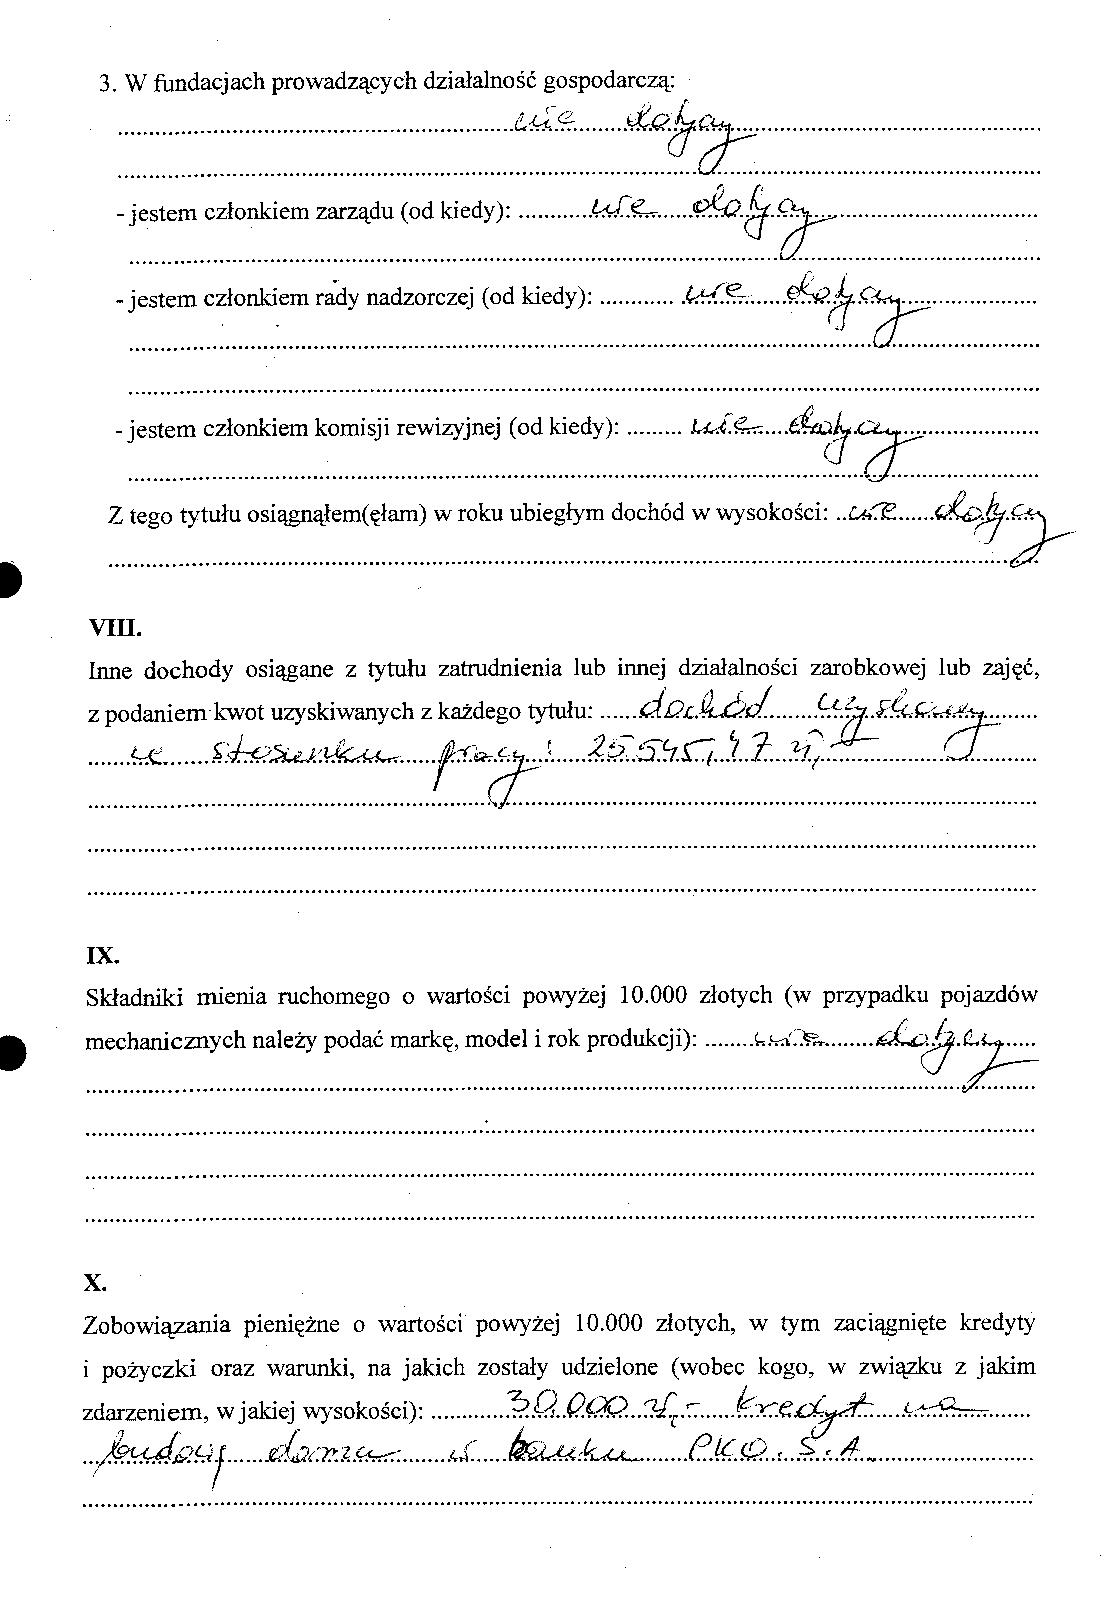 3. W fundacjach prowadzących działalność gospodarczą:
nie dotyczy
- jestem członkiem zarządu (od kiedy): nie dotyczy
- jestem członkiem rady nadzorczej (od kiedy): nie dotyczy
- jestem członkiem komisji rewizyjnej (od kiedy): nie dotyczy
Z tego tytułu osiągnąłem(ęłam) w roku ubiegłym dochód w wysokości: nie dotyczy
VIII.
Inne dochody osiągane z tytułu zatrudnienia lub innej działalności zarobkowej lub zajęć,
z podaniem kwot uzyskiwanych z każdego tytułu: dochód uzyskany
w stosunku pracy: 25.545,47 zł,-
IX.
Składniki mienia ruchomego o wartości powyżej 10.000 złotych (w przypadku pojazdów
mechanicznych należy podać markę, model i rok produkcji): nie dotyczy
X.
Zobowiązania pieniężne o wartości powyżej 10.000 złotych, w tym zaciągnięte kredyty
i pożyczki oraz warunki, na jakich zostały udzielone (wobec kogo, w związku z jakim
zdarzeniem, w jakiej wysokości): 30.000 zł,- kredyt na
budowę domu w banku PKO. S.A.